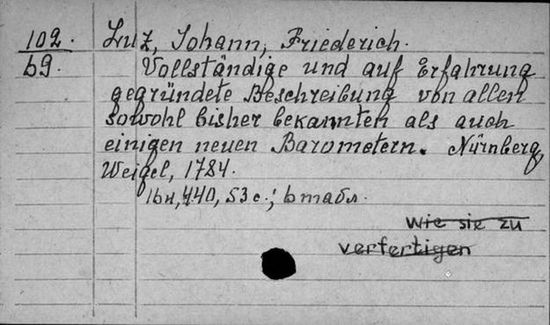 102.
69.
Luz, Johann, Friederich.
Vollständige und auf Erfahrung
gegründete Beschreibung von allen
sowohl bisher bekannten als auch
einigen neuen Barometern. Nürnberg,
Weigel, 1784.
16н, 440, 53 с.; 6 табл.
wie sie zu
verfertigen